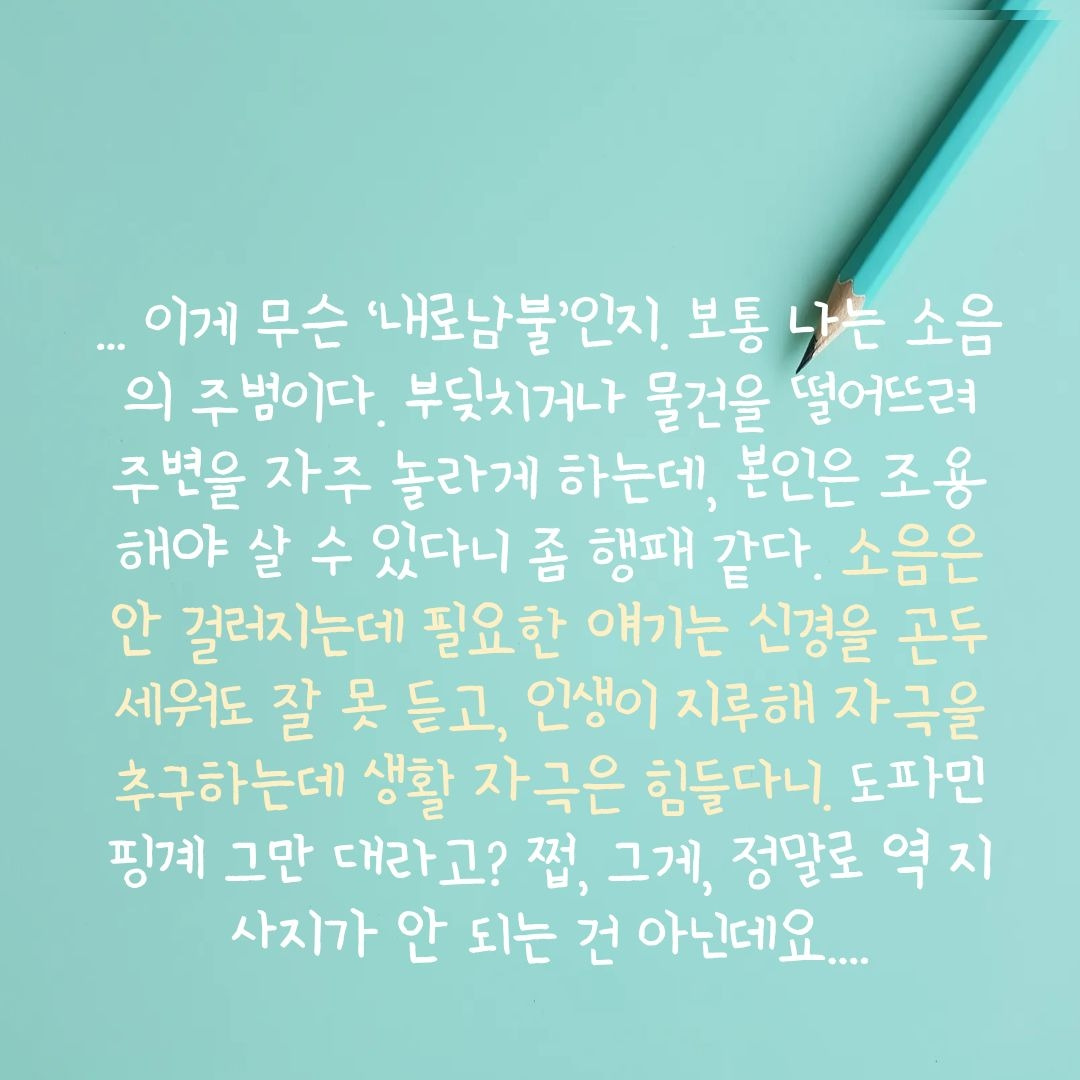 ... 이게 무슨 ‘내로남불’인지. 보통 나는 소음
의 주범이다. 부딪치거나 물건을 떨어뜨려
주변을 자주 놀라게 하는데, 본인은 조용
해야 살 수 있다니 좀 행패 같다. 소음은
안 걸러지는데 필요한 얘기는 신경을 곤두
세워도 잘 못 듣고, 인생이 지루해 자극을
추구하는데 생활 자극은 힘들다니. 도파민
핑계 그만 대라고? 쩝, 그게, 정말로 역 지
사지가 안 되는 건 아닌데요....